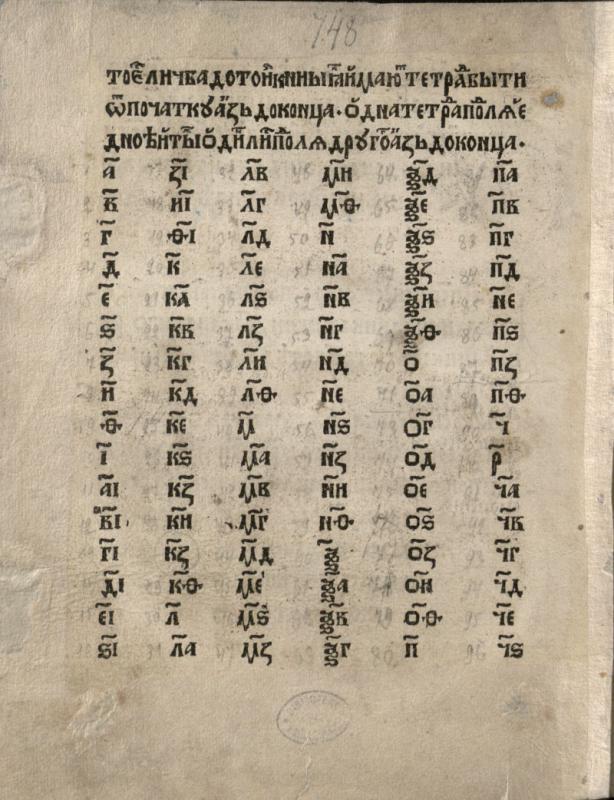 748
ТОЕ҇ ЛИЧБА ДО ТОИ КНИЫГИ ИМАЮТ ТЕТРАДЬ БЫТИ
Ѿ ПОЧАТКУ АЗЪ ДО КОНЦА · ОДНА ТЕТРА ПОЛЯ Е
ДНОЕ И ТЫ ОДИ ЛИ ПОЛЯ ДРУГОГО АЗЪ ДО КОНЦА ·
А҃ З҃І Л҃В М҃И Ѯ҃Д П҃А
В҃ И҃І Л҃Г М҃Ѳ Ѯ҃Е П҃В
Г҃ Ѳ҃І Л҃Д Н҃ Ѯ҃Ѕ П҃Г
Д҃ К҃ Л҃Е Н҃А Ѯ҃З П҃Д
Е҃ К҃А Л҃Ѕ Н҃В Ѯ҃И П҃Е
Ѕ҃ К҃В Л҃З Н҃Г Ѯ҃Ѳ П҃Ѕ
З҃ К҃Г Л҃И Н҃Д О҃ П҃З
И҃ К҃Д Л҃Ѳ Н҃Е О҃А П҃Ѳ
Ѳ҃ К҃Е М҃ Н҃Ѕ О҃Г Ч҃
І҃ К҃Ѕ М҃А Н҃З О҃Д Р҃
А҃І К҃З М҃В Н҃И О҃Е Ч҃А
В҃І К҃И М҃Г Н҃Ѳ О҃Ѕ Ч҃В
Г҃І К҃З М҃Д Ѯ҃ О҃З Ч҃Г
Д҃І К҃Ѳ М҃Е Ѯ҃А О҃И Ч҃Д
Е҃І Л҃ М҃Ѕ Ѯ҃В О҃Ѳ Ч҃Е
Ѕ҃І Л҃А М҃З Ѯ҃Г П҃ Ч҃Ѕ